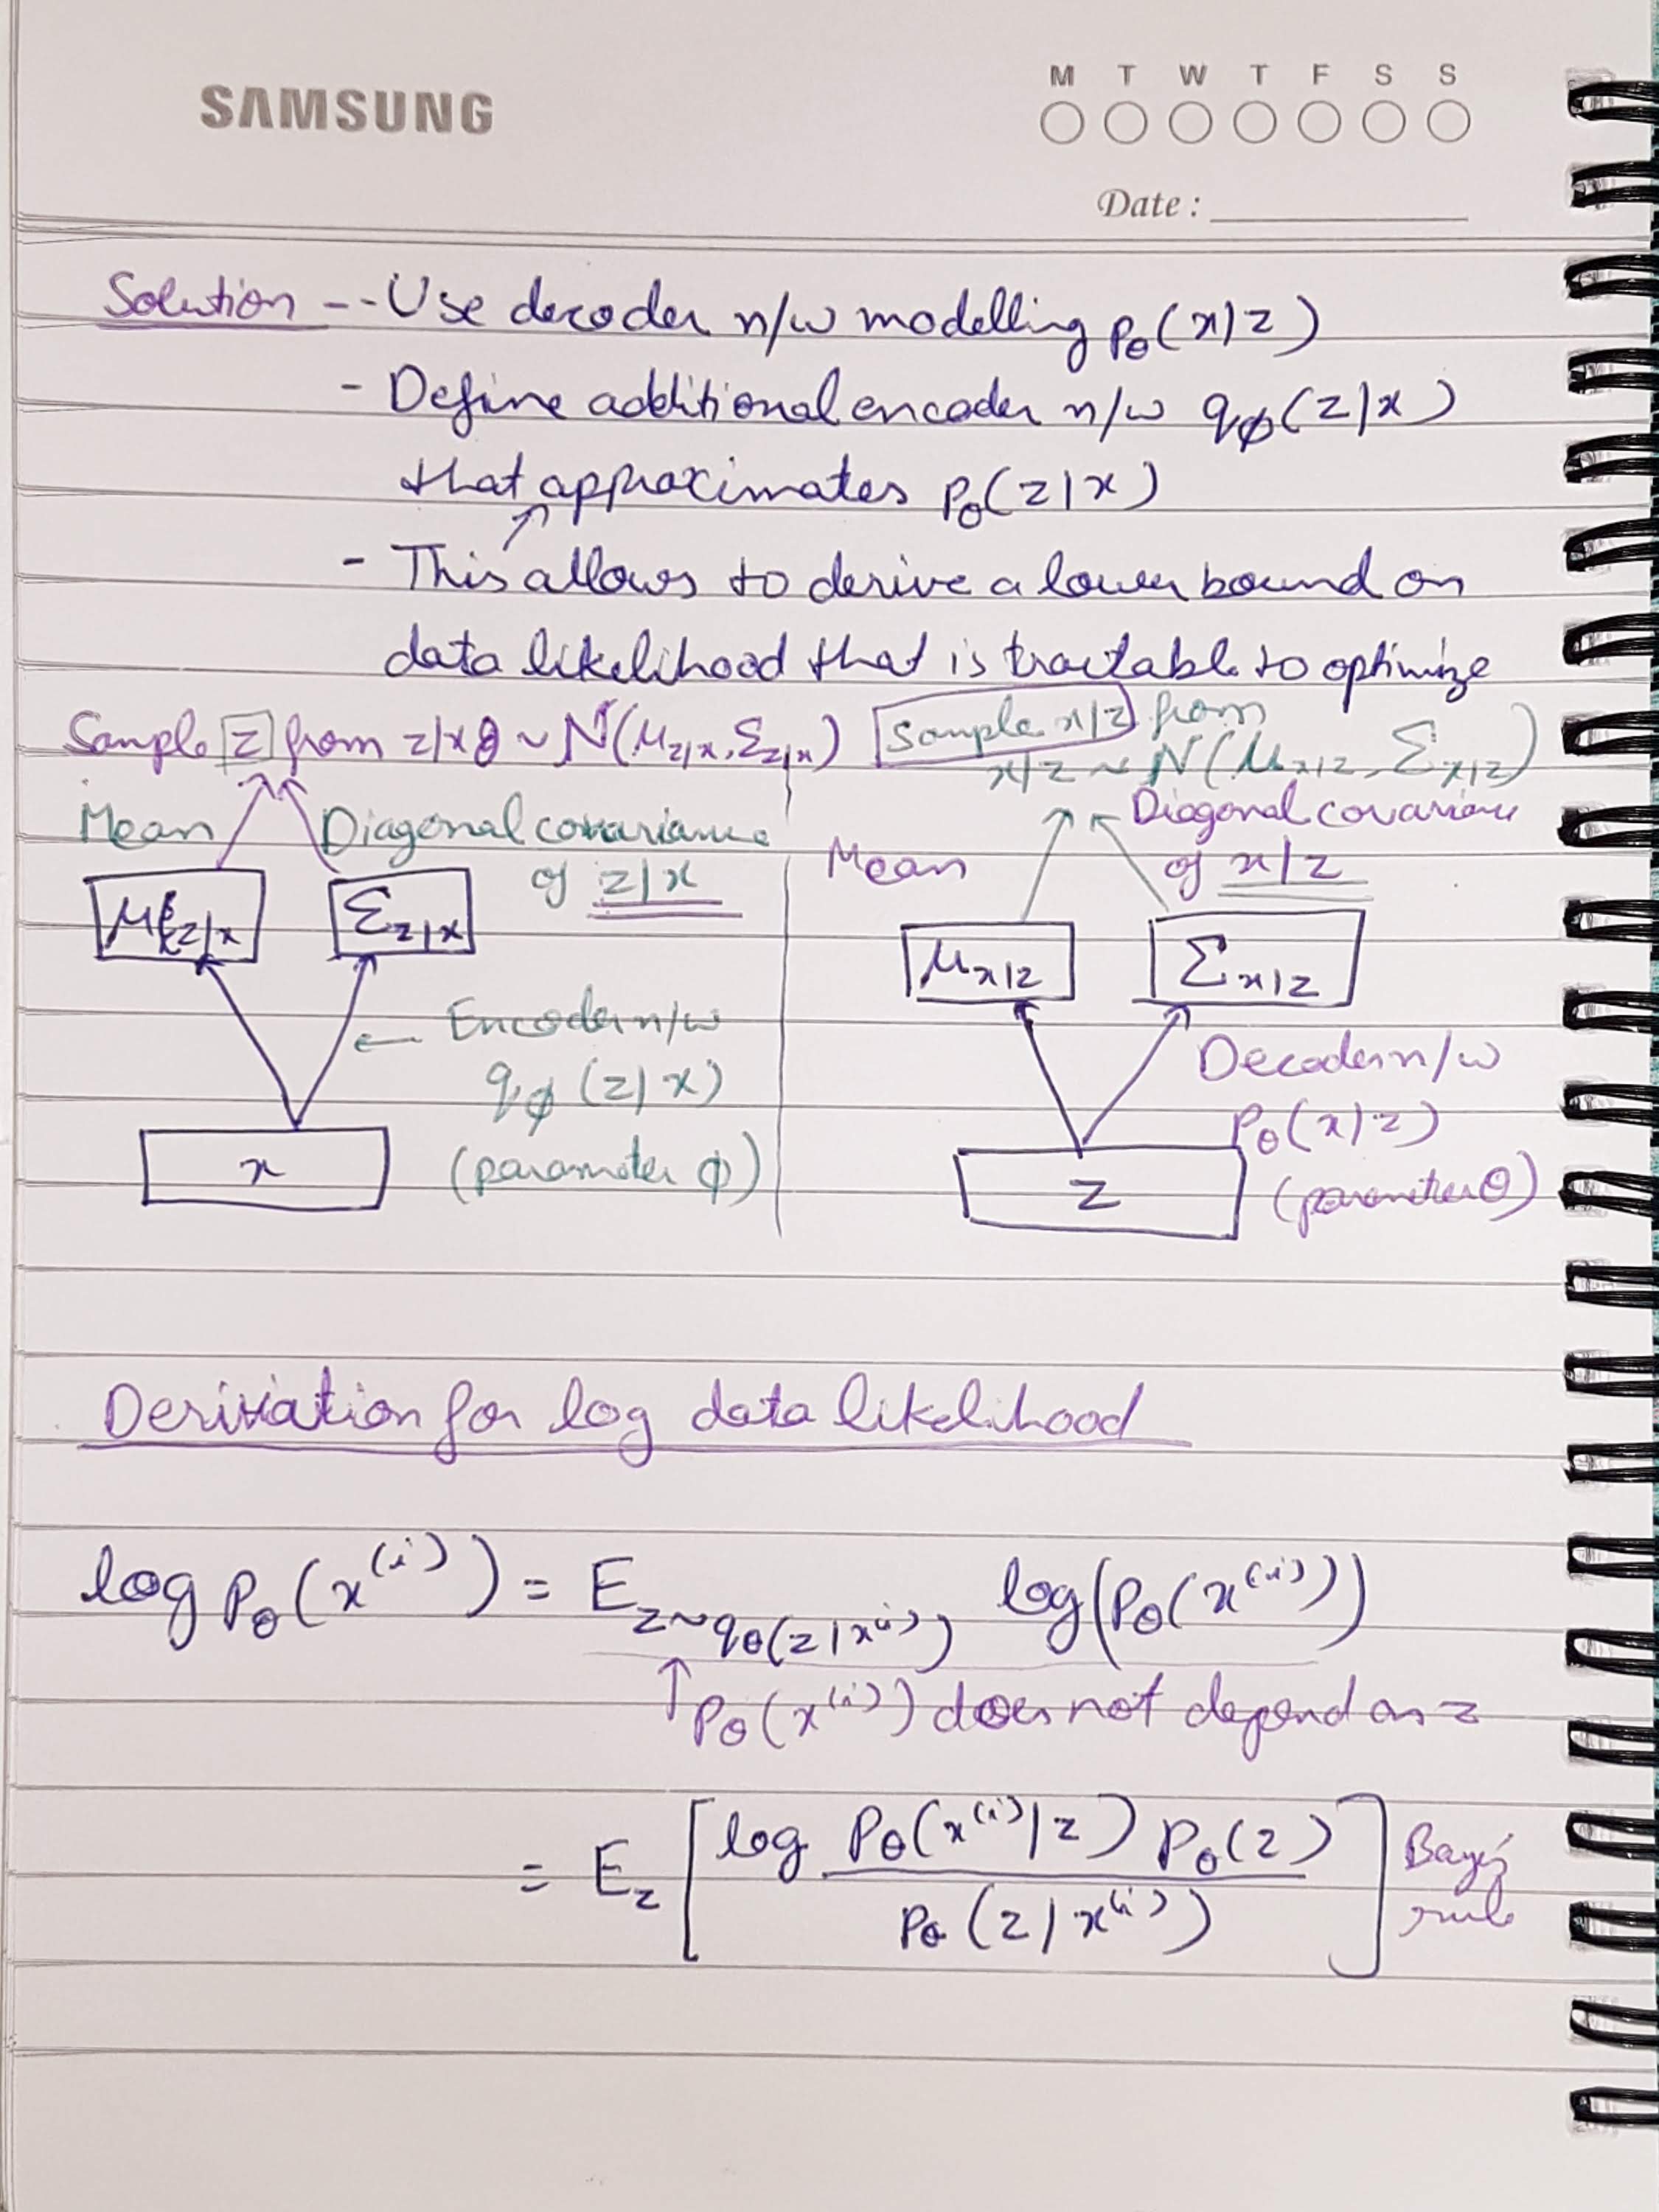 SAMSUNG
M T W T F S S
Date :
Solution -- Use decoder n/w modelling pθ(x|z)
- Define additional encoder n/w qϕ(z|x)
that approximates pθ(z|x)
- This allows to derive a lower bound on
data likelihood that is tractable to optimize
Sample z from z|x ~ N(μz|x, Σz|x)
Mean
Diagonal covariance
of z|x
μz|x
Σz|x
← Encoder n/w
qϕ(z|x)
(parameter ϕ)
x
Sample x|z from
x|z ~ N(μx|z, Σx|z)
Mean
Diagonal covariance
of x|z
μx|z
Σx|z
Decoder n/w
pθ(x|z)
(parameter θ)
z
Derivation for log data likelihood
log pθ(x⁽ⁱ⁾) = E z~qθ(z|x⁽ⁱ⁾) log(pθ(x⁽ⁱ⁾))
↑ pθ(x⁽ⁱ⁾) does not depend on z
= Ez [log pθ(x⁽ⁱ⁾|z) pθ(z) / pθ(z|x⁽ⁱ⁾)] Bayes' rule